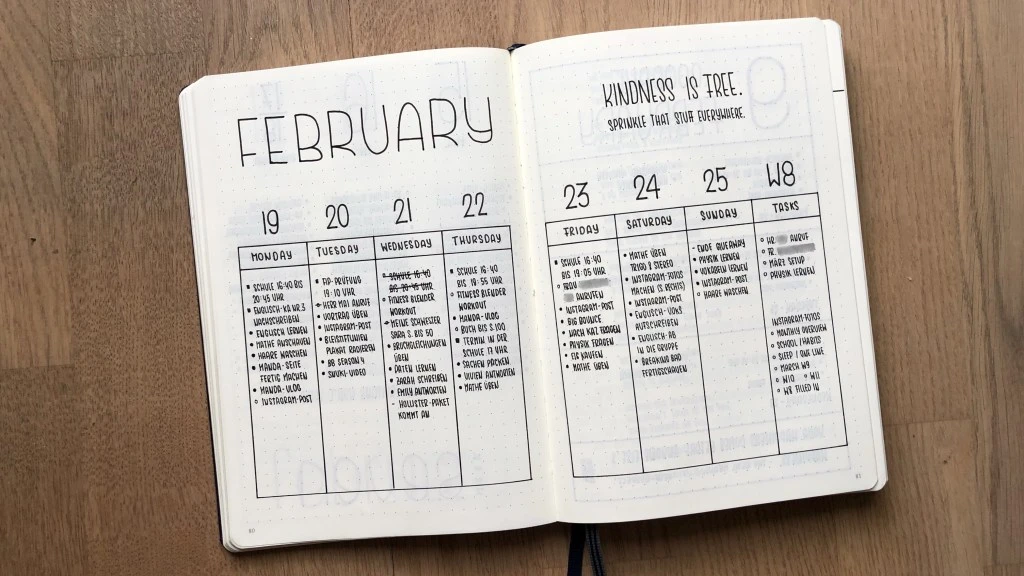 FEBRUARY
19
20
21
22
MONDAY
TUESDAY
WEDNESDAY
THURSDAY
SCHULE 16:40 BIS
20:45 UHR
ENGLISCH-KA NR.3
NACHSCHREIBEN
ENGLISCH LERNEN
MATHE ANSCHAUEN
HAARE WASCHEN
MANDA-SEITE
FERTIG MACHEN
MANDA-VLOG
INSTAGRAM-POST
FIP-PRÜFUNG
19:10 UHR
ANRUF
VORTRAG ÜBEN
INSTAGRAM-POST
BLEISTIFTLINIEN
PLAKAT RADIEREN
BB SEASON 4
SUUKI-VIDEO
SCHULE 16:40
BIS 20:45 UHR
FITNESS BLENDER
WORKOUT
MEINE SCHWESTER
SARA S. BIS 50
BRUCHGLEICHUNGEN
ÜBEN
DATEN LERNEN
SARAH SCHREIBEN
EMILY ANTWORTEN
HOLLISTER-PAKET
KOMMT AN
SCHULE 16:40
BIS 18:55 UHR
FITNESS BLENDER
WORKOUT
MANDA-VLOG
BUCH BIS S.100
TERMIN IN DER
SCHULE 17 UHR
SACHEN PACKEN
ANTWORTEN
MATHE ÜBEN
60
KINDNESS IS FREE.
SPRINKLE THAT STUFF EVERYWHERE.
23
24
25
W8
FRIDAY
SATURDAY
SUNDAY
TASKS
SCHULE 16:40
BIS 18:05 UHR
FRAU
ANRUFEN
INSTAGRAM-POST
BIG BOUNCE
FRAGEN
PHYSIK FRAGEN
EIS KAUFEN
MATHE ÜBEN
MATHE ÜBEN
STEREO
INSTAGRAM-FOTOS
MACHEN
INSTAGRAM-POST
ENGLISCH-VOKS
AUFSCHREIBEN
ENGLISCH-
IN DIE GRUPPE
BREAKING BAD
FERTIGSCHAUEN
GIVEAWAY
PHYSIK LERNEN
VOKABELN LERNEN
INSTAGRAM-POST
HAARE WASCHEN
HR. ANRUF
FR.
MÄRZ SETUP
PHYSIK LERNEN
INSTAGRAM-FOTOS
MONTHLY OVERVIEW
SCHOOL / HABITS
SLEEP / ONE LINE
MARCH W9
W10 W11
W8 FILLED IN
61